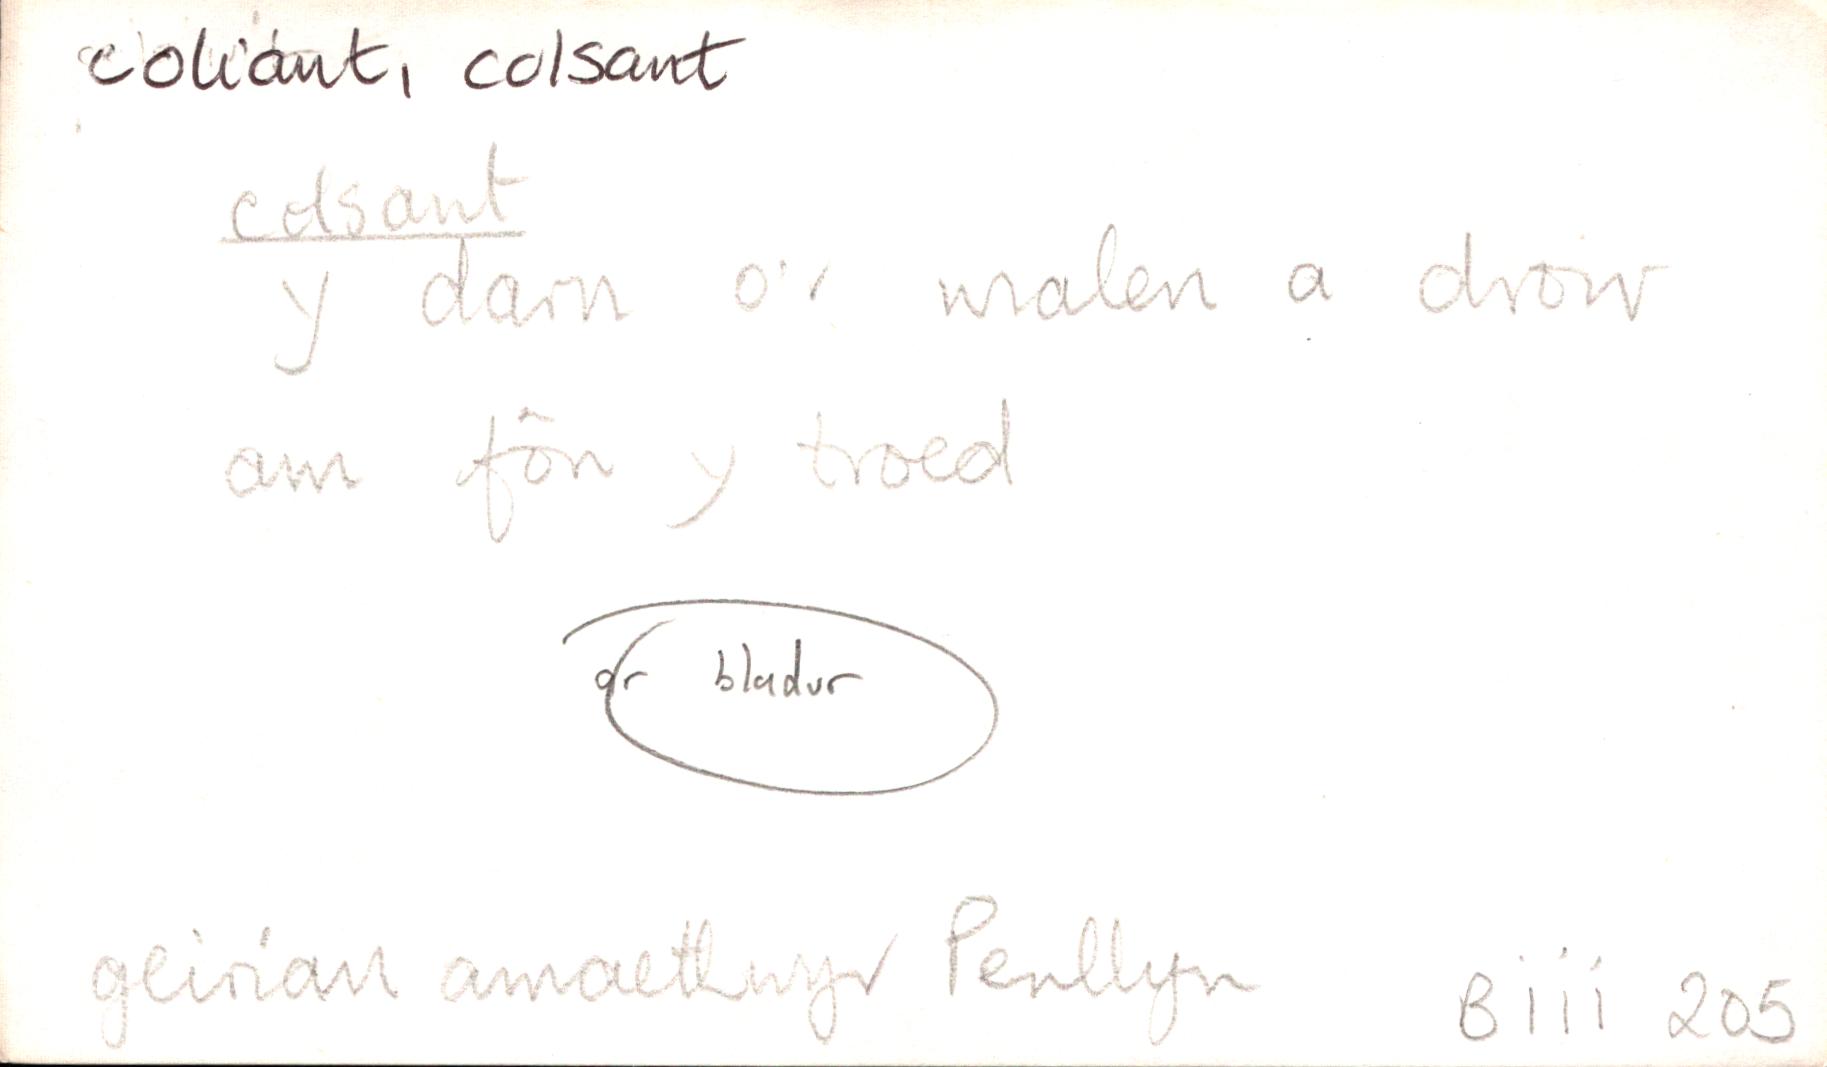 coliant, colsant
colsant
y darn o'r malen a drow
am fôn y troed
ar bladur
geirian amaethwyr Penllyn B iii 205